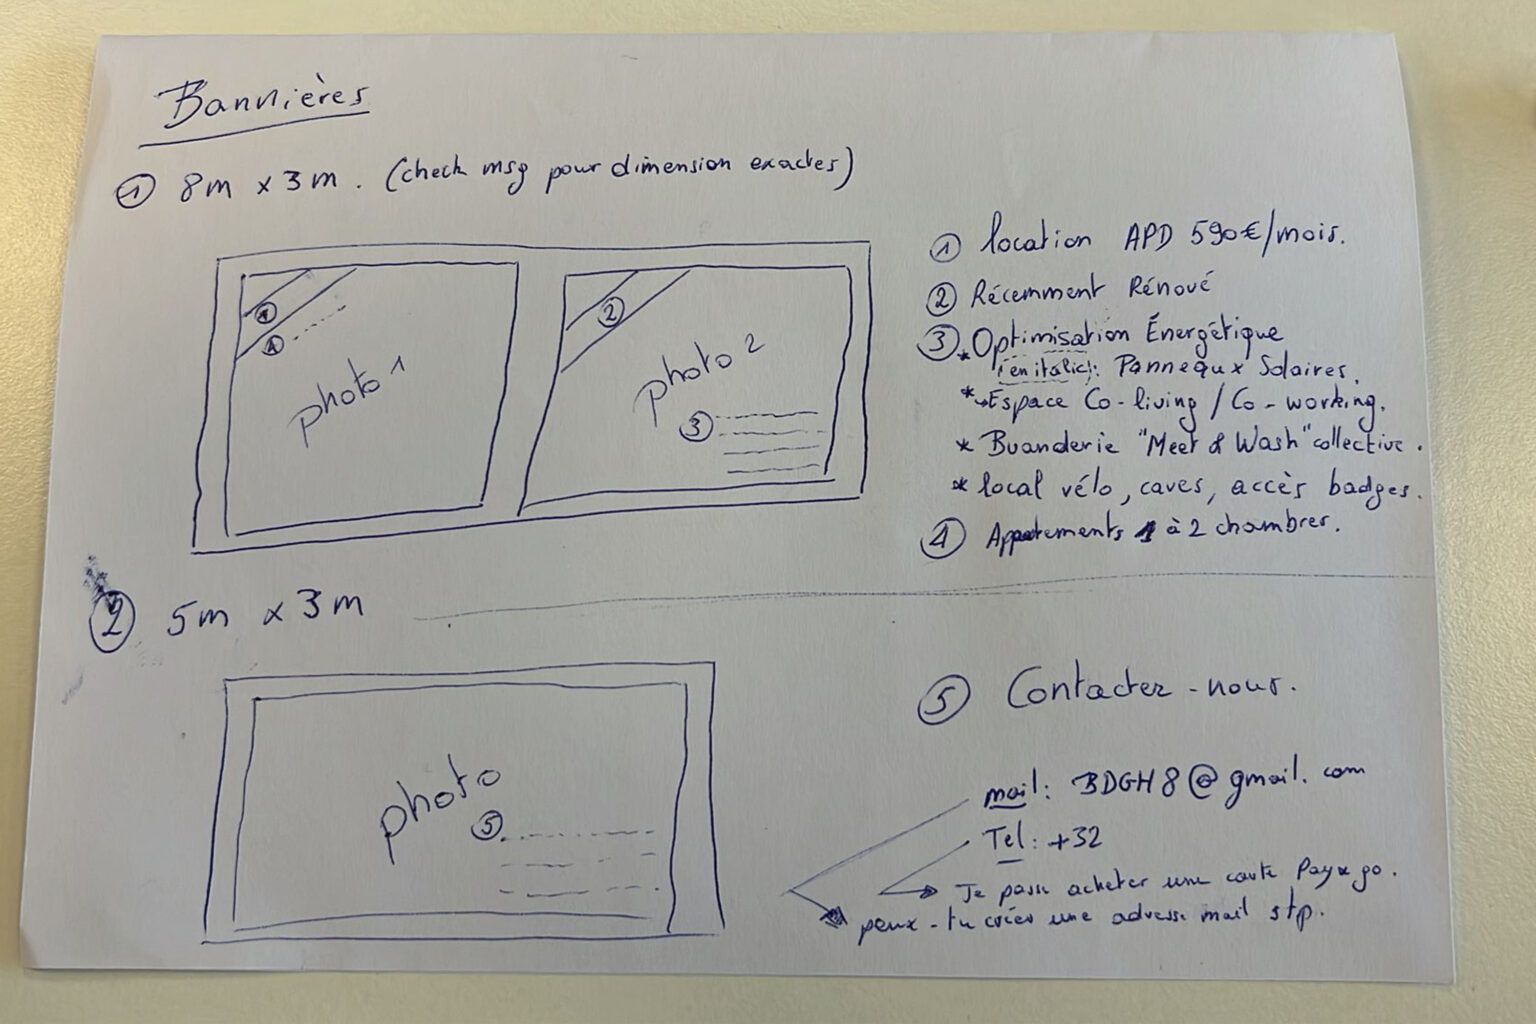 Bannières
① 8m x 3m. (check msg pour dimension exactes)
①
④
photo 1
②
photo 2
③
① location APD 590€/mois.
② Récemment Rénové
③ Optimisation Énergétique
* (en italic): Panneaux Solaires.
* Espace Co-living / Co-working.
* Buanderie "Meet & Wash" collective.
* local vélo, caves, accès badges.
④ Appartements 1 à 2 chambres.
② 5m x 3m
photo
⑤
⑤ Contactez-nous.
mail: BDGH8@gmail.com
Tel: +32
Je passe acheter une carte Pay&go.
peux-tu créer une adresse mail stp.